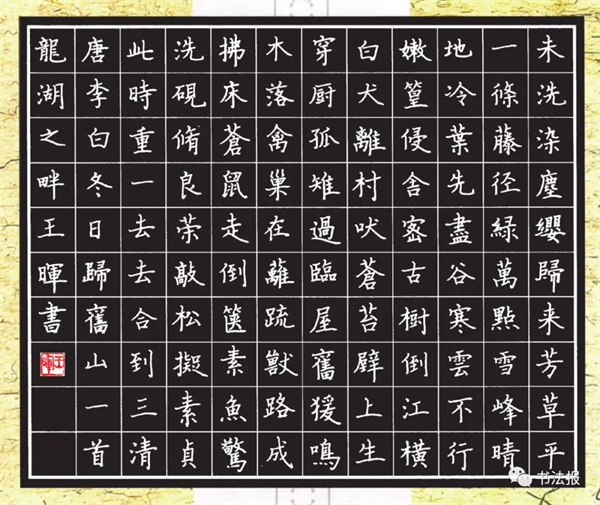 未洗染塵纓歸来芳草平
一條藤径緑萬點雪峰晴
地冷葉先盡谷寒雲不行
嫩篁侵舎密古樹倒江横
白犬離村吠蒼苔壁上生
穿厨孤雉過臨屋舊猨鳴
木落禽巢在蘺疏獸路成
拂床蒼鼠走倒篋素魚驚
洗硯脩良荣敲松擬素貞
此時重一去去合到三清
唐李白冬日歸舊山一首
龍湖之畔王暉書
王暉
书法报